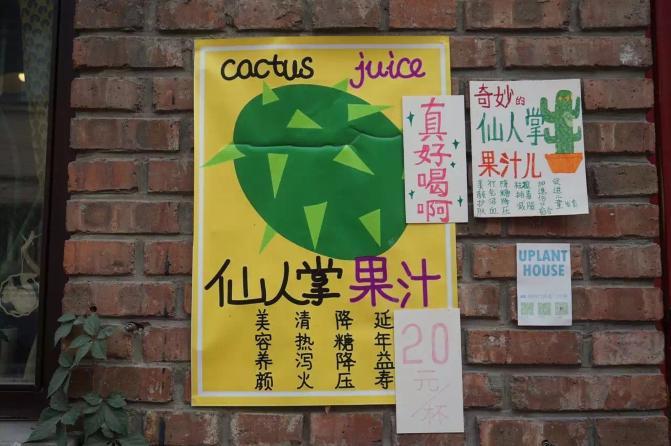 cactus juice
仙人掌果汁
美容养颜
清热泻火
降糖降压
延年益寿
真好喝啊
20
元/杯
奇妙的
仙人掌
果汁儿
UPLANT
HOUSE